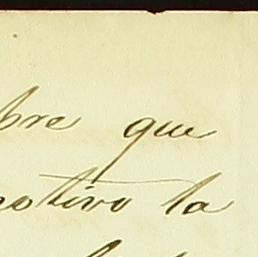 bre que
otivo la